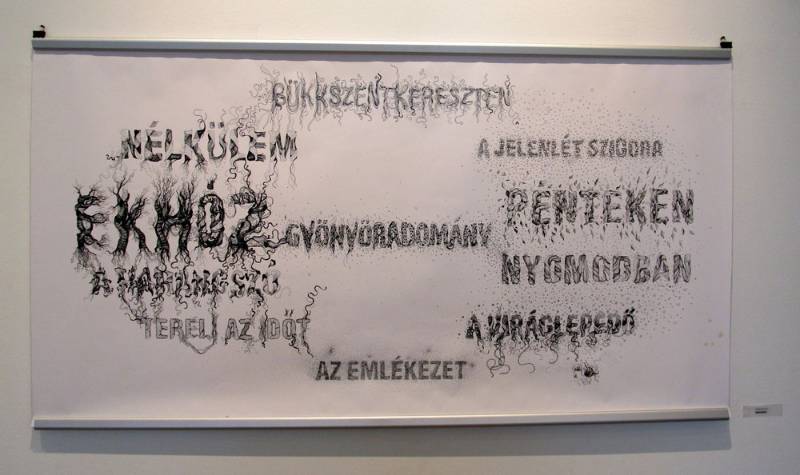 BÜKKSZENTKERESZTEN
...NÉLKÜLEM
A JELENLÉT SZIGORA
EKHÓZ
PÉNTEKEN
GYÖNYÖRADOMÁNY
NYOMODBAN
A HARANGSZÓ
TERELI AZ IDŐT
A VIRÁGLEPEDŐ
AZ EMLÉKEZET